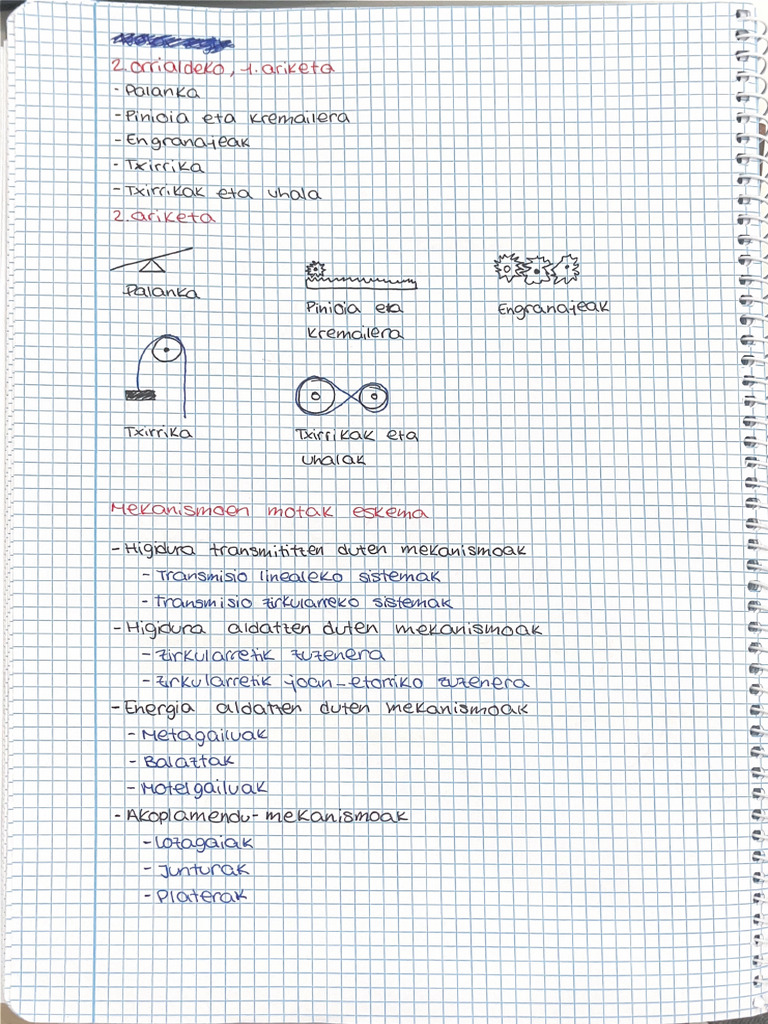 2. orrialdeko, 1. ariketa
- Palanka
- Pinioia eta kremailera
- Engranajeak
- Txirrika
- Txirrikak eta uhala
2. ariketa
Palanka
Pinioia eta
kremailera
Engranajeak
Txirrika
Txirrikak eta
uhalak
Mekanismoen motak eskema
- Higidura transmititzen duten mekanismoak
- Transmisio linealeko sistemak
- Transmisio zirkularreko sistemak
- Higidura aldatzen duten mekanismoak
- Zirkularretik zuzenera
- Zirkularretik joan-etorriko zuzenera
- Energia aldatzen duten mekanismoak
- Metagailuak
- Balaztak
- Motelgailuak
- Akoplamendu-mekanismoak
- Lozagaiak
- Junturak
- Platerak